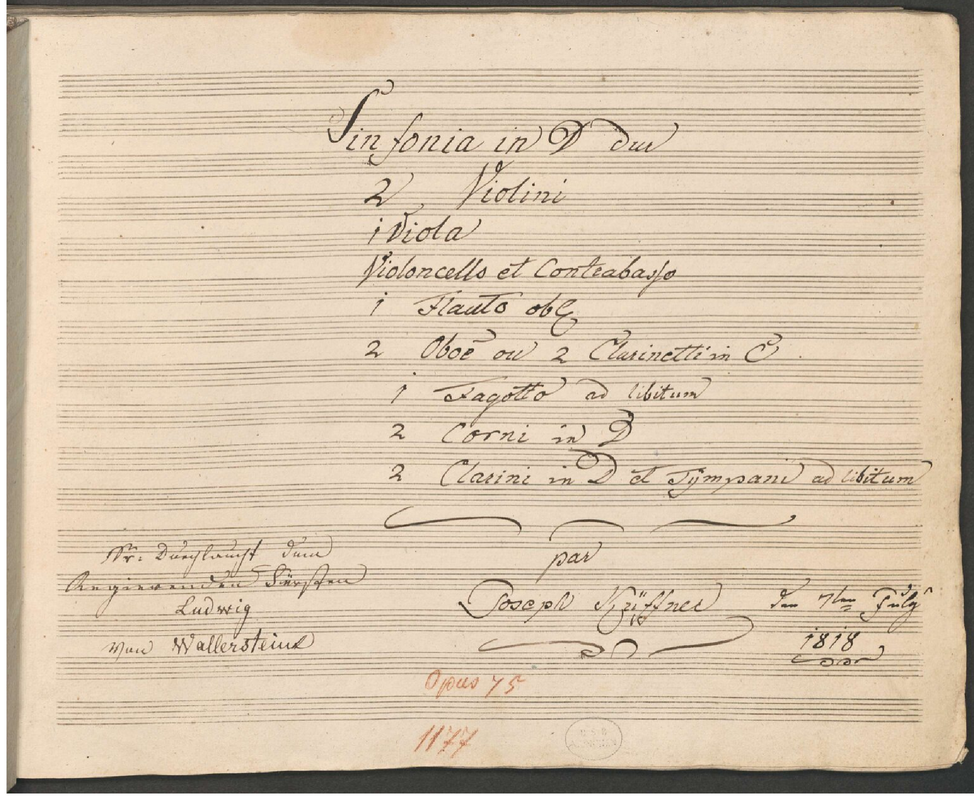 Sinfonia in D dur
2 Violini
1 Viola
Violoncello et Contrabasso
1 Flauto obl
2 Oboe ou 2 Clarinetti in C
1 Fagotto ad libitum
2 Corni in D
2 Clarini in D et Tÿmpani ad libitum
par
Joseph Küffner
den 7ten July
1818
Sr: Durchlaucht dem
Regierenden Fürsten
Ludwig
von Wallerstein
Opus 75
1177